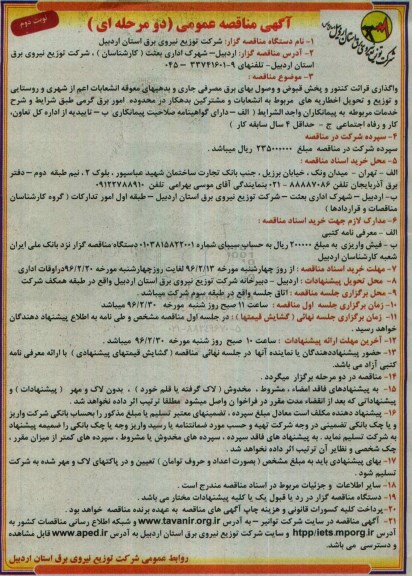 نوبت دوم
آگهی مناقصه عمومی (دو مرحله ای)
شرکت توزیع نیروی برق استان اردبیل
۱- نام دستگاه مناقصه گزار: شرکت توزیع نیروی برق استان اردبیل
۲- آدرس مناقصه گزار: اردبیل- شهرک اداری بعثت (کارشناسان)، شرکت توزیع نیروی برق
استان اردبیل- تلفنهای ۹-۳۳۷۴۱۶۰۱ - ۰۴۵
۳- موضوع مناقصه:
واگذاری قرائت کنتور و پخش قبوض و وصول بهای برق مصرفی جاری و بدهیهای معوقه انشعابات اعم از شهری و روستایی
و توزیع و تحویل اخطاریه های مربوط به انشعابات و مشترکین بدهکار در محدوده امور برق گرمی طبق شرایط و شرح
خدمات مربوطه به پیمانکاران واجد الشرایط (الف - دارای گواهینامه صلاحیت پیمانکاری ب - تاییدیه از اداره کل تعاون،
کار و رفاه اجتماعی ج - حداقل ۴ سال سابقه کار)
۴- سپرده شرکت در مناقصه
سپرده شرکت در مناقصه مبلغ ۲۳۵۰۰۰۰۰۰ ریال میباشد.
۵- محل خرید اسناد مناقصه:
الف - تهران - میدان ونک، خیابان برزیل، جنب بانک تجارت ساختمان شهید عباسپور، بلوک ۲، نیم طبقه دوم - دفتر
برق آذربایجان تلفن ۸۸۸۸۷۰۸۶ - ۰۲۱ بنمایندگی آقای موسی بهرامی تلفن ۰۹۱۲۲۷۸۸۹۱۰
ب- اردبیل - شهرک اداری بعثت - شرکت توزیع نیروی برق استان اردبیل - طبقه اول امور تدارکات (گروه کارشناسان
مناقصات و قراردادها)
۶- مدارک لازم جهت خرید اسناد مناقصه:
الف - معرفی نامه کتبی
ب- فیش واریزی به مبلغ ۲۰۰۰۰۰ ریال به حساب سیبای شماره ۰۱۰۳۸۱۵۸۲۲۰۰۱ دستگاه مناقصه گزار نزد بانک ملی ایران
شعبه کارشناسان اردبیل
۷- مهلت خرید اسناد مناقصه: از روز چهارشنبه مورخه ۹۶/۲/۱۳ لغایت روزچهارشنبه مورخه ۹۶/۲/۲۰ دراوقات اداری
۸- محل تحویل پیشنهادات: اردبیل - دبیرخانه شرکت توزیع نیروی برق استان اردبیل واقع در طبقه همکف شرکت
۹- محل برگزاری جلسه مناقصه: اتاق جلسه واقع در طبقه سوم شرکت میباشد
۱۰- زمان برگزاری جلسه اول مناقصه: ساعت ۱۱ صبح روز شنبه مورخه ۹۶/۲/۳۰ میباشد
۱۱- زمان برگزاری جلسه نهائی (گشایش قیمتها): در جلسه اول مناقصه مشخص و طی نامه به اطلاع پیشنهاد دهندگان
خواهد رسید.
۱۲- آخرین مهلت ارائه پیشنهادات: ساعت ۱۰ صبح روز شنبه مورخه ۹۶/۲/۳۰ میباشد.
۱۳- حضور پیشنهاددهندگان یا نماینده آنها در جلسه نهائی مناقصه (گشایش قیمتهای پیشنهادی) با ارائه معرفی نامه
کتبی آزاد می باشد.
۱۴- مناقصه در دو مرحله برگزار میگردد.
۱۵- به پیشنهادهای فاقد امضاء، مشروط، مخدوش (لاک گرفته یا قلم خورد)، بدون لاک و مهر (پیشنهادات) و
پیشنهاداتی که بعد از انقضاء مدت مقرر در فراخوان واصل میشود مطلقا ترتیب اثر داده نخواهد شد.
۱۶- پیشنهاد دهنده مکلف است معادل مبلغ سپرده، تضمینهای معتبر تسلیم یا مبلغ مذکور را بحساب بانکی شرکت واریز
و یا چک بانکی تضمینی در وجه شرکت تهیه و حسب مورد ضمانتنامه یا رسید واریز وجه یا چک بانکی را ضمیمه پیشنهاد
به شرکت تسلیم نماید. به پیشنهاد های فاقد سپرده، سپرده های مخدوش یا مشروط، سپرده های کمتر از میزان مقرر،
چک شخصی و نظایر آن ترتیب اثر داده نخواهد شد.
۱۷- بهای پیشنهادی باید به مبلغ مشخص (بصورت اعداد و حروف توامان) تعیین و در پاکتهای لاک و مهر شده به شرکت
تسلیم شود.
۱۸- سایر اطلاعات و جزئیات مربوط در اسناد مناقصه مندرج است.
۱۹- دستگاه مناقصه گزار در رد یا قبول یک یا کلیه پیشنهادات مختار می باشد.
۲۰- پرداخت کلیه کسورات قانونی و هزینه چاپ آگهی های مناقصه به عهده برنده مناقصه خواهد بود.
۲۱- آگهی مناقصه در سایت شرکت توانیر - به آدرس www.tavanir.org.ir و شبکه اطلاع رسانی مناقصات کشور به
آدرس htpp/iets.mporg.ir و سایت شرکت توزیع نیروی برق استان اردبیل به آدرس www.aped.ir قابل مشاهده
و دسترسی می باشد.
روابط عمومی شرکت توزیع نیروی برق استان اردبیل